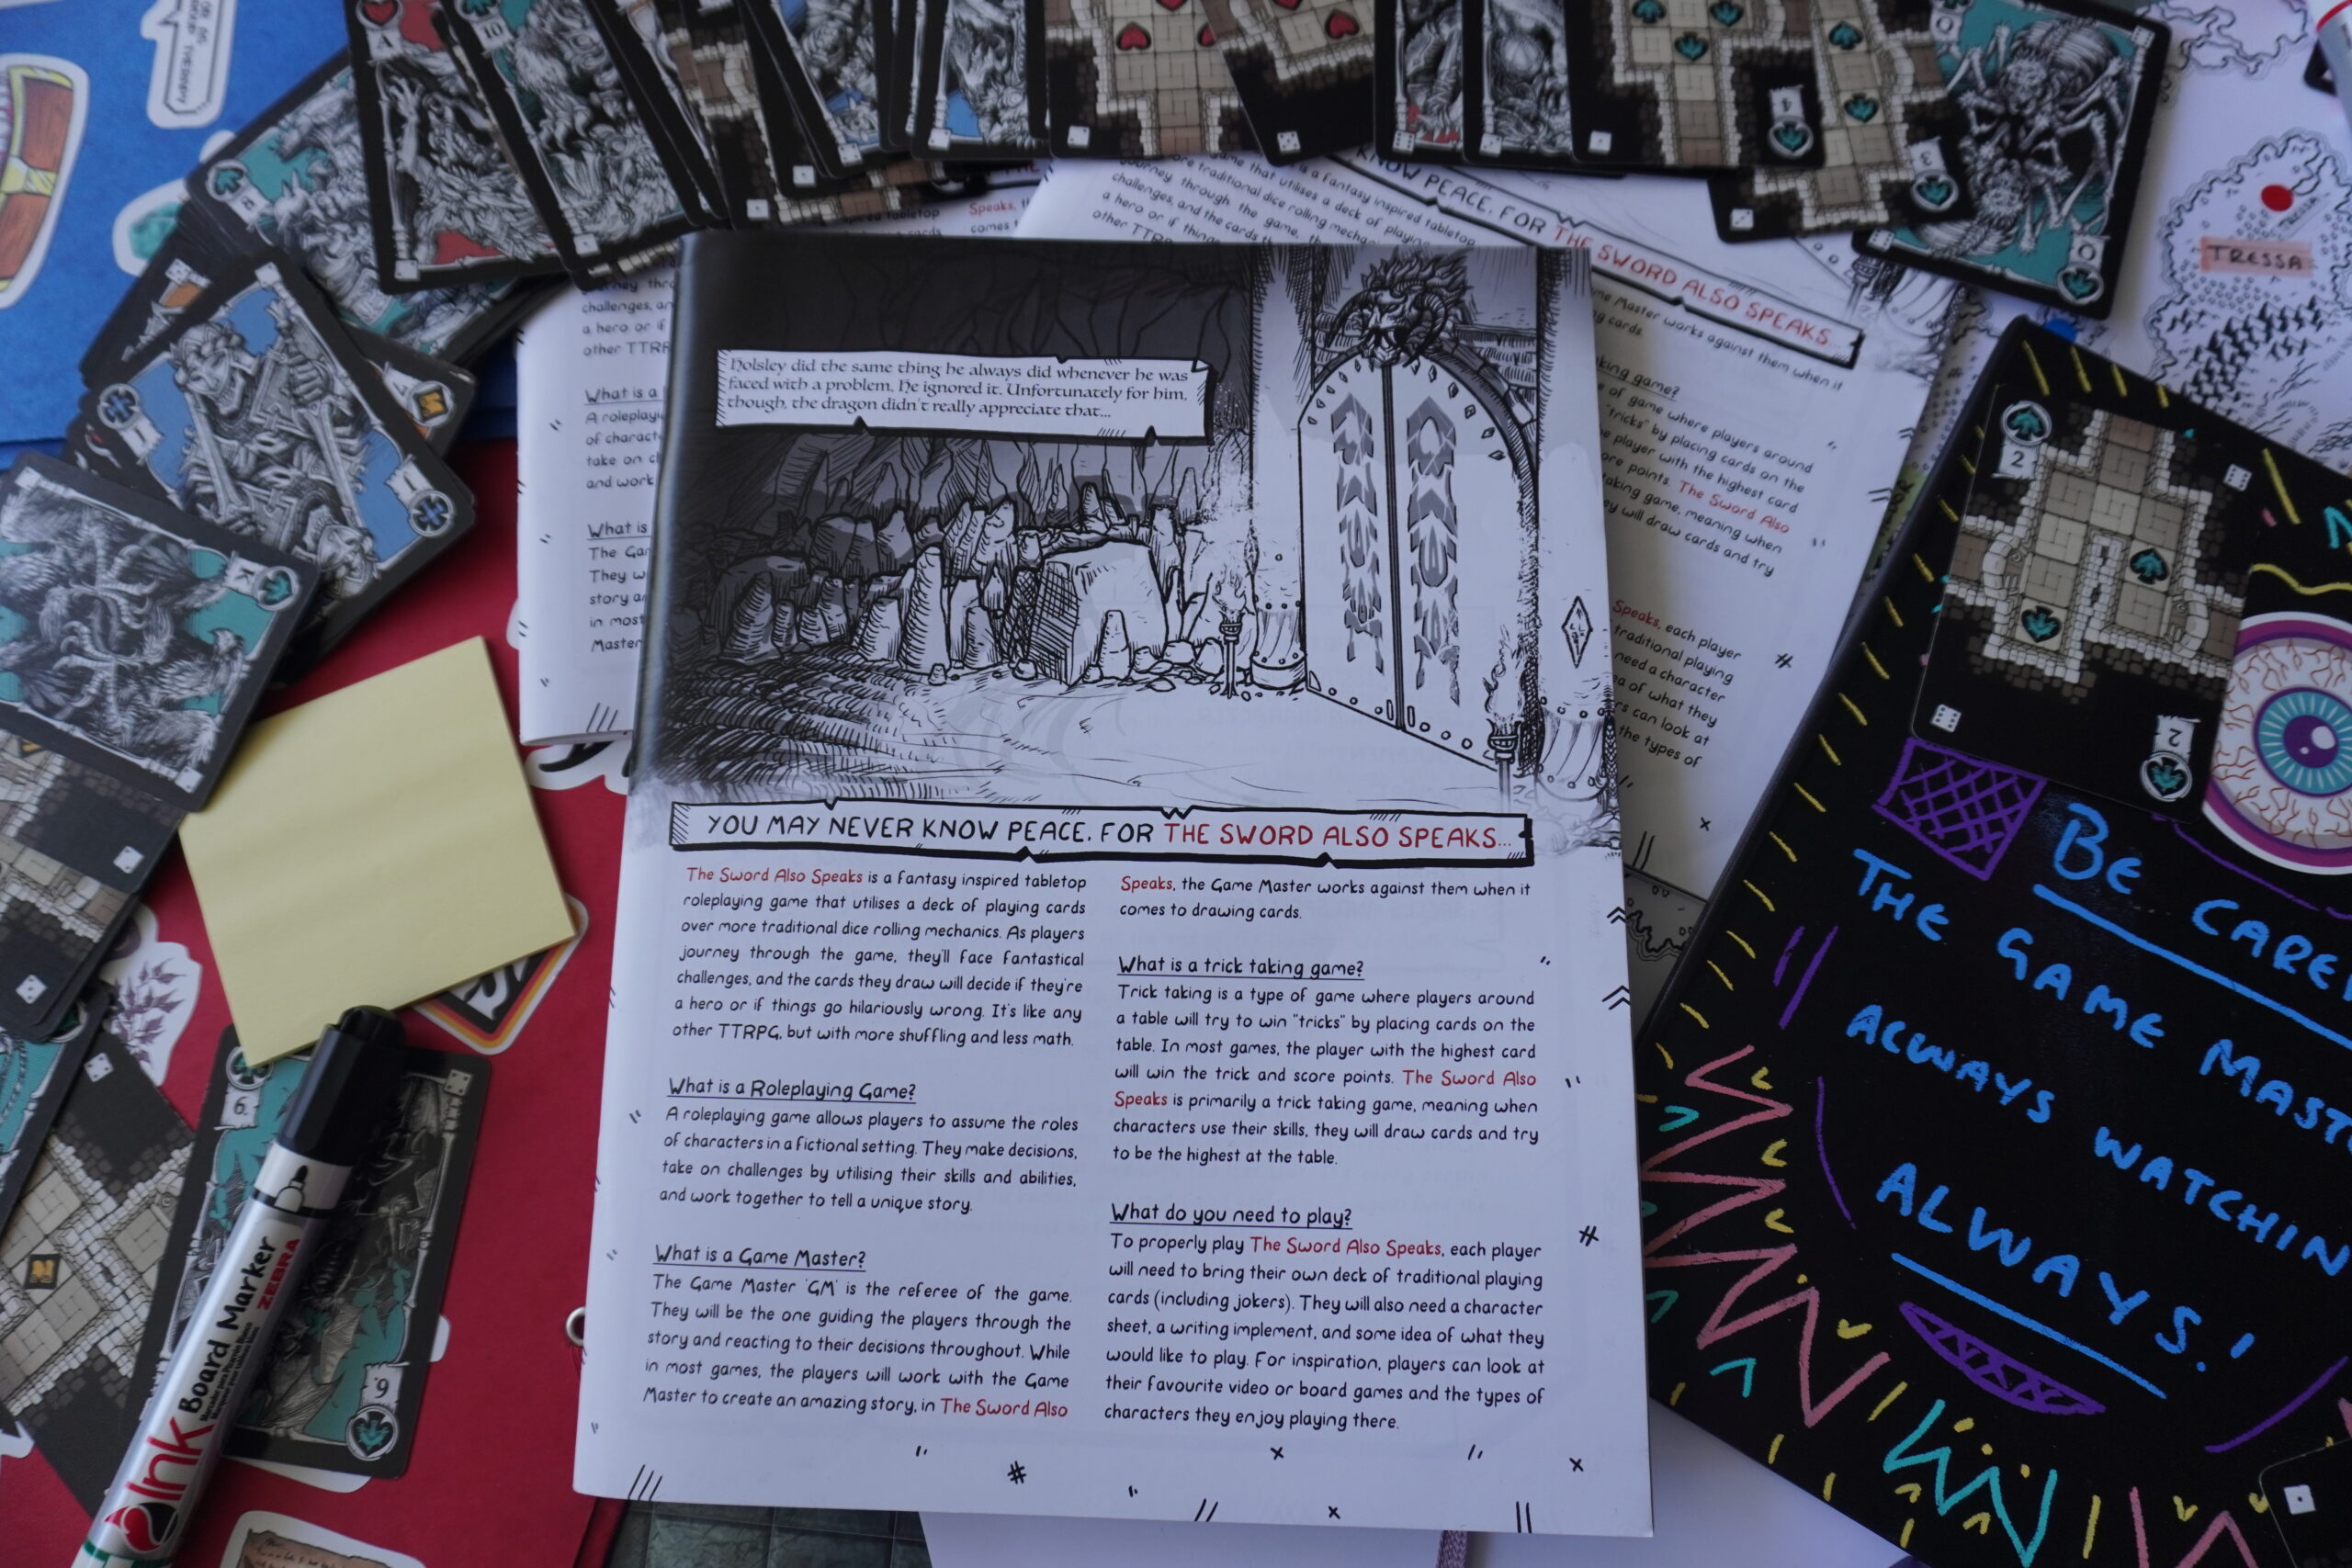 Holsley did the same thing he always did whenever he was
faced with a problem. He ignored it. Unfortunately for him,
though, the dragon didn't really appreciate that...
YOU MAY NEVER KNOW PEACE. FOR THE SWORD ALSO SPEAKS...
The Sword Also Speaks is a fantasy inspired tabletop
roleplaying game that utilises a deck of playing cards
over more traditional dice rolling mechanics. As players
journey through the game, they'll face fantastical
challenges, and the cards they draw will decide if they're
a hero or if things go hilariously wrong. It's like any
other TTRPG, but with more shuffling and less math.
What is a Roleplaying Game?
A roleplaying game allows players to assume the roles
of characters in a fictional setting. They make decisions,
take on challenges by utilising their skills and abilities,
and work together to tell a unique story.
What is a Game Master?
The Game Master 'GM' is the referee of the game.
They will be the one guiding the players through the
story and reacting to their decisions throughout. While
in most games, the players will work with the Game
Master to create an amazing story, in The Sword Also
Speaks, the Game Master works against them when it
comes to drawing cards.
What is a trick taking game?
Trick taking is a type of game where players around
a table will try to win "tricks" by placing cards on the
table. In most games, the player with the highest card
will win the trick and score points. The Sword Also
Speaks is primarily a trick taking game, meaning when
characters use their skills, they will draw cards and try
to be the highest at the table.
What do you need to play?
To properly play The Sword Also Speaks, each player
will need to bring their own deck of traditional playing
cards (including jokers). They will also need a character
sheet, a writing implement, and some idea of what they
would like to play. For inspiration, players can look at
their favourite video or board games and the types of
characters they enjoy playing there.
KNOW PEACE. FOR THE SWORD ALSO SPEAKS...
TRESSA
TRESSA
BE
THE GAME
ALWAYS
ALWAYS!
Board Marker
ZEBRA
Ink
A
10
8
K
6
6
2
2
4
3
Q
Q